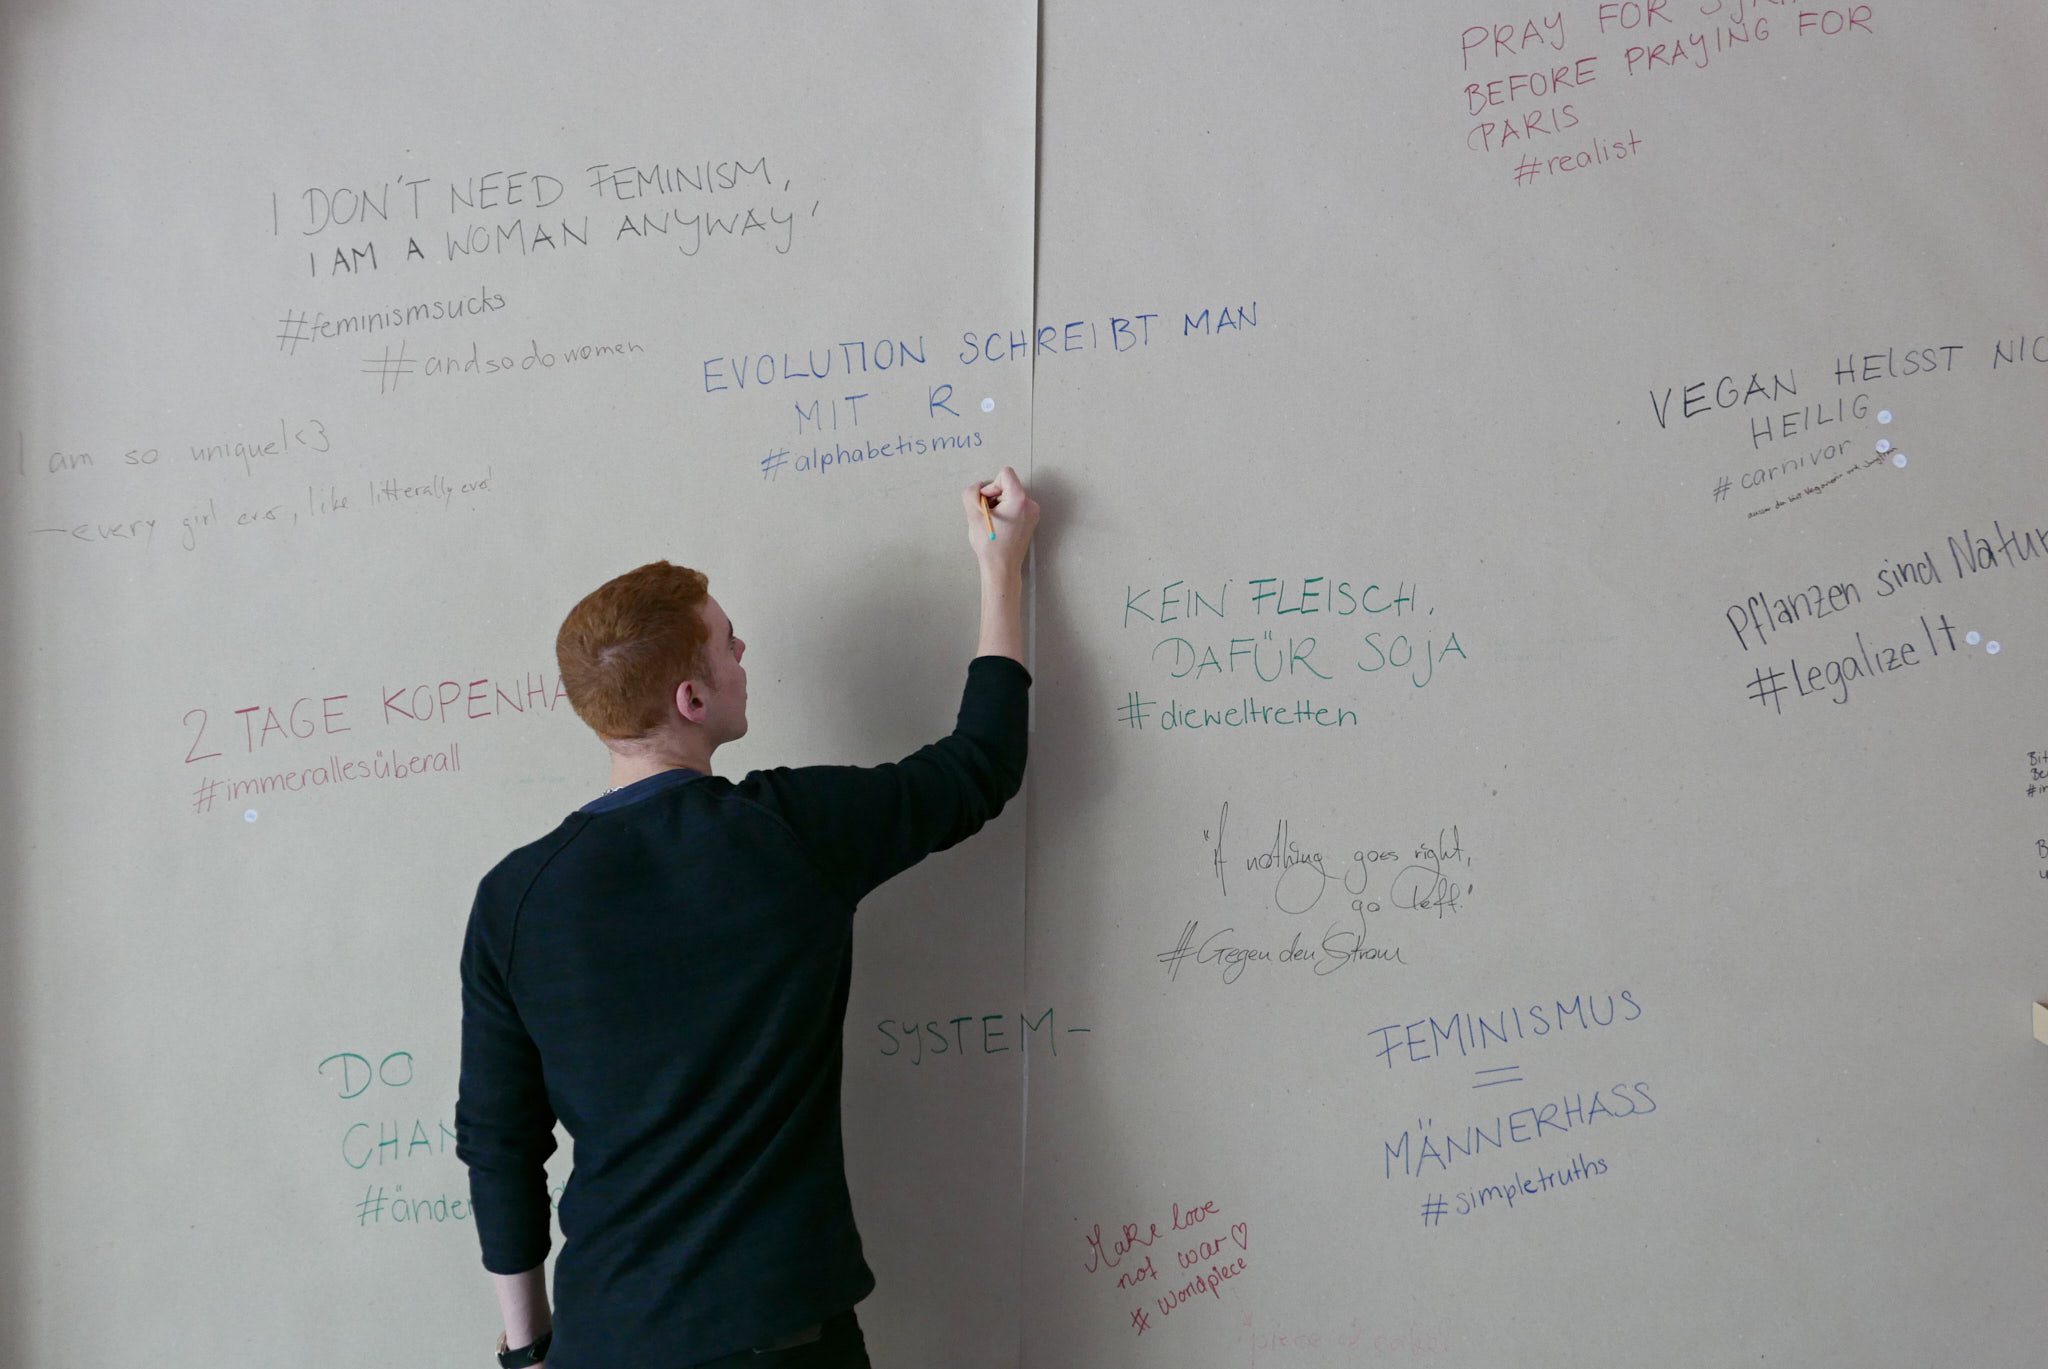 PRAY FOR
BEFORE PRAYING FOR
PARIS
#realist
I DON'T NEED FEMINISM,
I AM A WOMAN ANYWAY'
#feminismsucks
#andsodowomen
EVOLUTION SCHREIBT MAN
MIT R.
#alphabetismus
I am so unique!<3
—every girl ever, like litterally ever!
VEGAN HEISST NIC
HEILIG
#carnivor
Pflanzen sind Natur
#Legalize It
KEIN FLEISCH,
DAFÜR SOJA
#dieweltretten
2 TAGE KOPENHA
#immerallesüberall
"if nothing goes right,
go left."
#Gegen den Strom
DO SYSTEM-
CHAN
#änder
FEMINISMUS
=
MÄNNERHASS
#simpletruths
Make love
not war ♡
#wordpiece
piece of cake